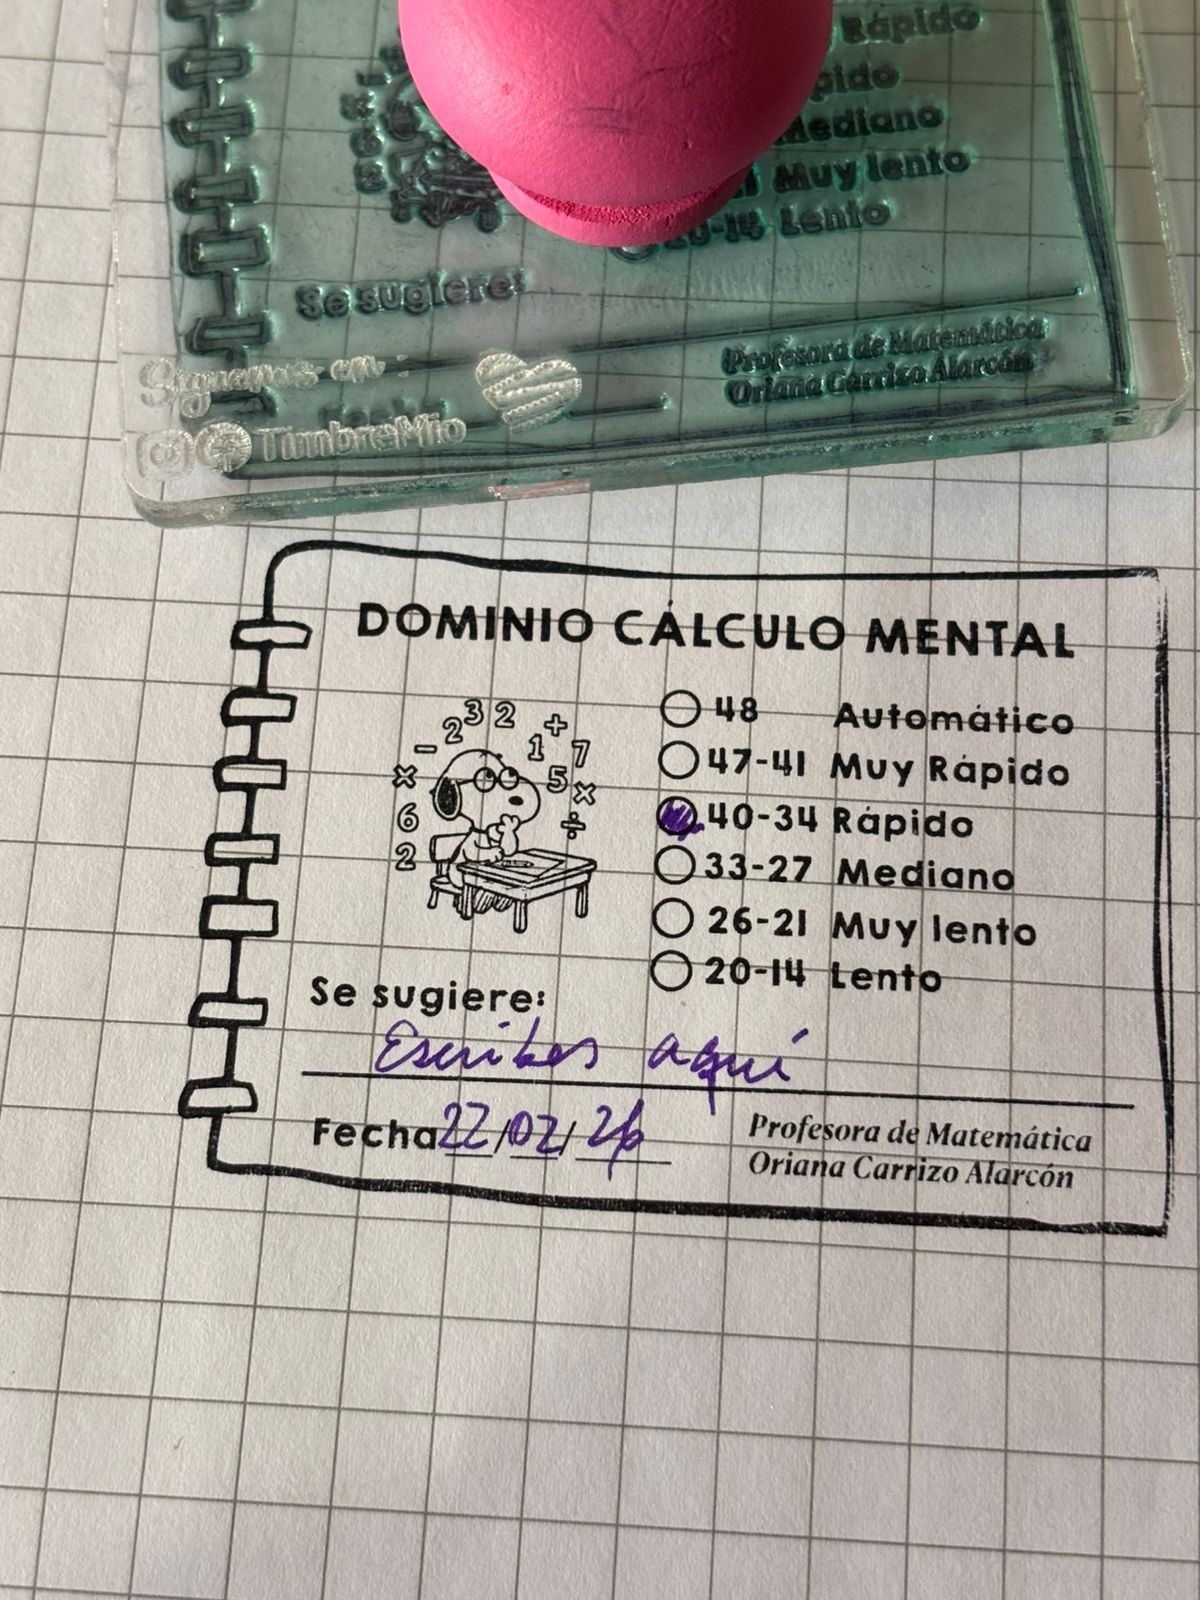 Rápido
pido
Mediano
Muy lento
20-14 Lento
Se sugiere:
Profesora de Matemática
Oriana Carrizo Alarcón
Síguenos en :
TimbreMio
DOMINIO CÁLCULO MENTAL
48 Automático
47-41 Muy Rápido
40-34 Rápido
33-27 Mediano
26-21 Muy lento
20-14 Lento
2 3 2 +
- 1 7
x 5 x
6 ÷
2
Se sugiere:
Escribes aquí
Fecha 22/02/26
Profesora de Matemática
Oriana Carrizo Alarcón